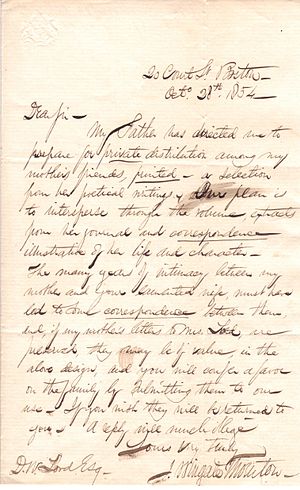 20 Court St Boston -
Oct. 28th. 1854 -
Dear Sir -
My Father has directed me to
prepare for private distribution among my
mother's friends, printed - a selection
from her poetical writings. Our plan is
to intersperse through the volume extracts
from her journal and correspondence
illustrative of her life and character -
The many years of intimacy between my
mother and your lamented wife, must have
led to some correspondence between them
and if my mother's letters to Mrs. Lord, are
preserved they may be of value, in the
above design, and you will confer a favor
on the family by submitting them to our
use. If you wish they will be returned to
you. A reply will much oblige
Yours very truly
J. Wingate Thornton -
D. W. Lord Esq -